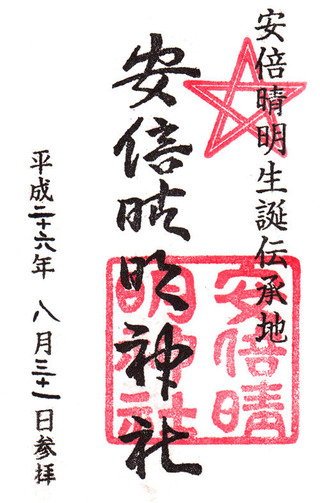 安倍晴明生誕伝承地
安倍晴明神社
安倍晴
明神社
平成二十六年 八月三十一日参拝